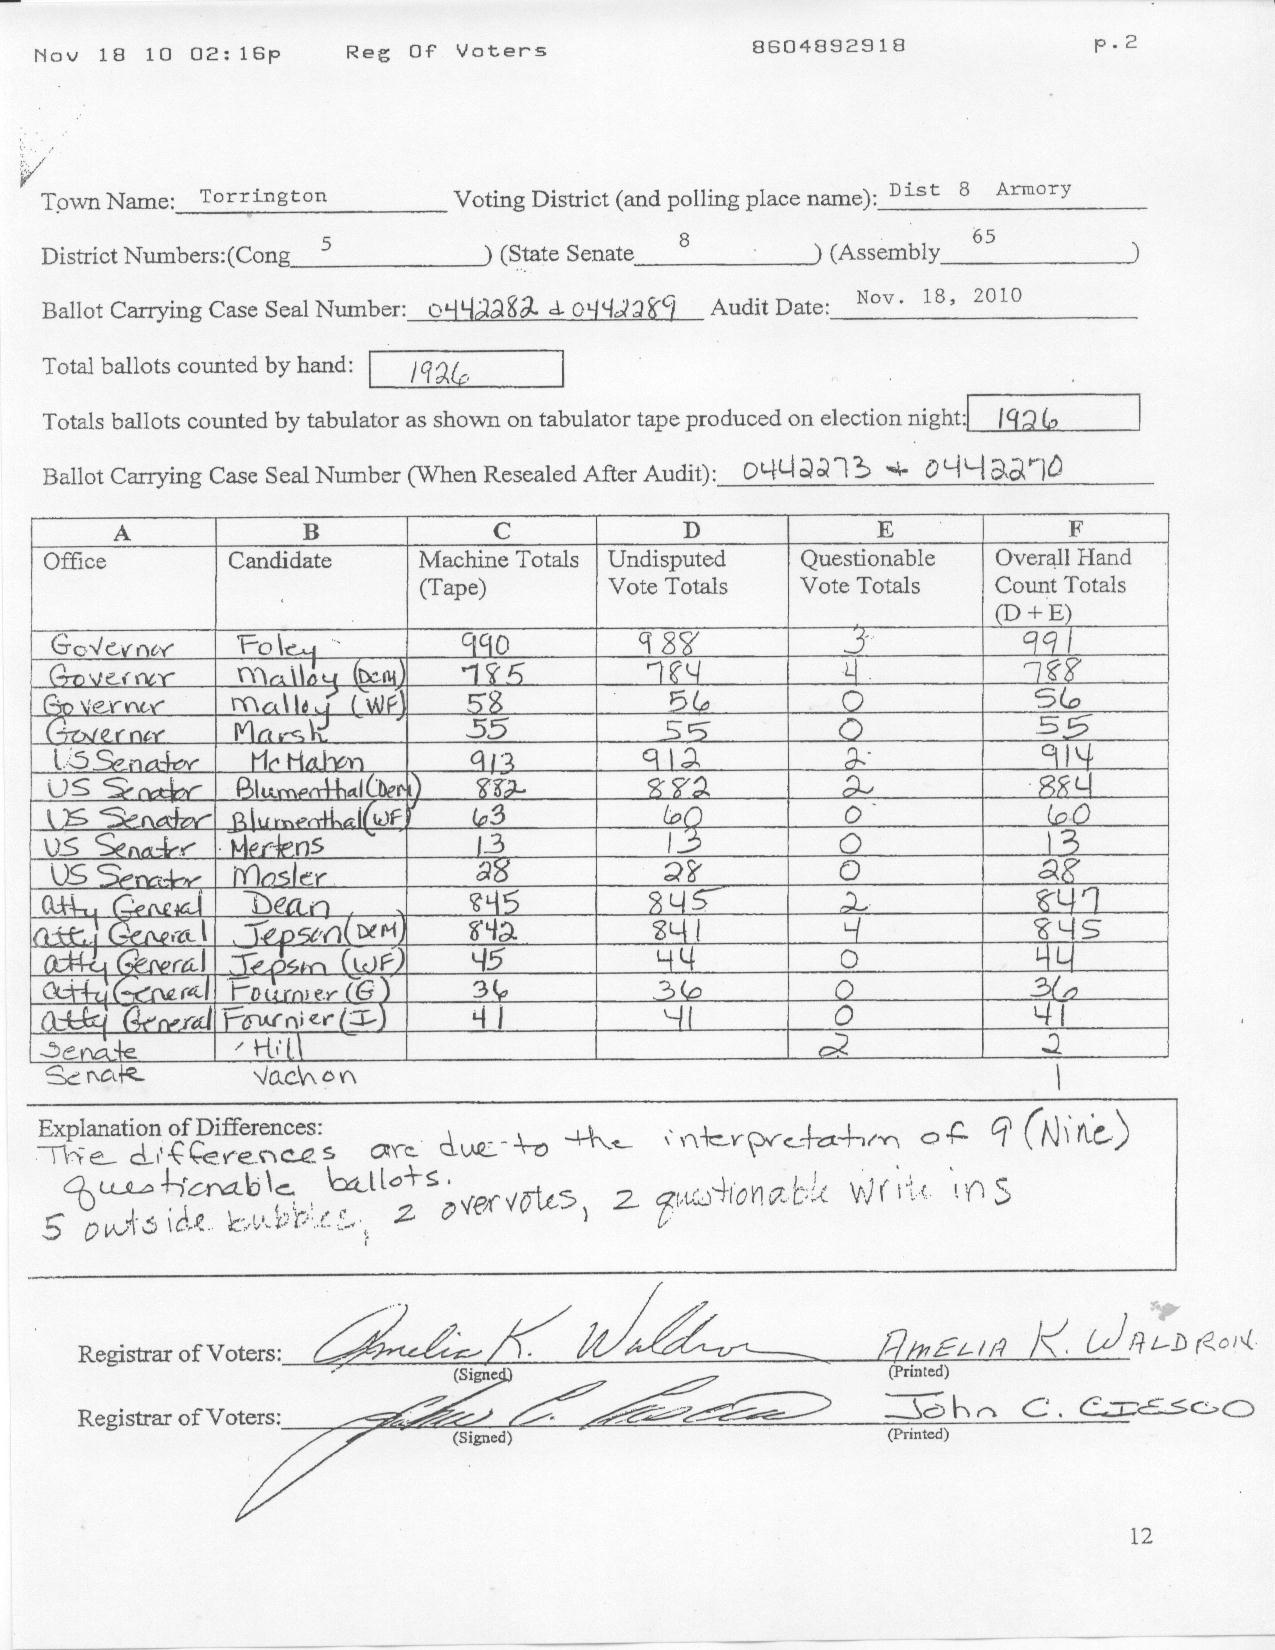 Nov 18 10 02:16p Reg Of Voters 8604892918 p.2
Town Name: Torrington Voting District (and polling place name): Dist 8 Armory
District Numbers:(Cong 5 ) (State Senate 8 ) (Assembly 65 )
Ballot Carrying Case Seal Number: 0442282 & 0442289 Audit Date: Nov. 18, 2010
Total ballots counted by hand: 1926
Totals ballots counted by tabulator as shown on tabulator tape produced on election night: 1926
Ballot Carrying Case Seal Number (When Resealed After Audit): 0442273 + 0442270
A B C D E F
Office Candidate Machine Totals Undisputed Questionable Overall Hand
(Tape) Vote Totals Vote Totals Count Totals
(D + E)
Governor Foley 990 988 3 991
Governor Malloy (DEM) 785 784 4 788
Governor Malloy (WF) 58 56 0 56
Governor Marsh 55 55 0 55
US Senator McMahon 913 912 2 914
US Senator Blumenthal (Dem) 882 882 2 884
US Senator Blumenthal (WF) 63 60 0 60
US Senator Mertens 13 13 0 13
US Senator Mosler 28 28 0 28
Atty General Dean 845 845 2 847
Atty General Jepsen (DEM) 842 841 4 845
Atty General Jepsen (WF) 45 44 0 44
Atty General Fournier (G) 36 36 0 36
Atty General Fournier (I) 41 41 0 41
Senate Hill 2 2
Senate Vachon 1
Explanation of Differences:
The differences are due to the interpretation of 9 (Nine)
questionable ballots.
5 outside bubbles, 2 overvotes, 2 questionable write ins
Registrar of Voters: Amelia K. Waldron AMELIA K. WALDRON
(Signed) (Printed)
Registrar of Voters: John C. CIESCO
(Signed) (Printed)
12